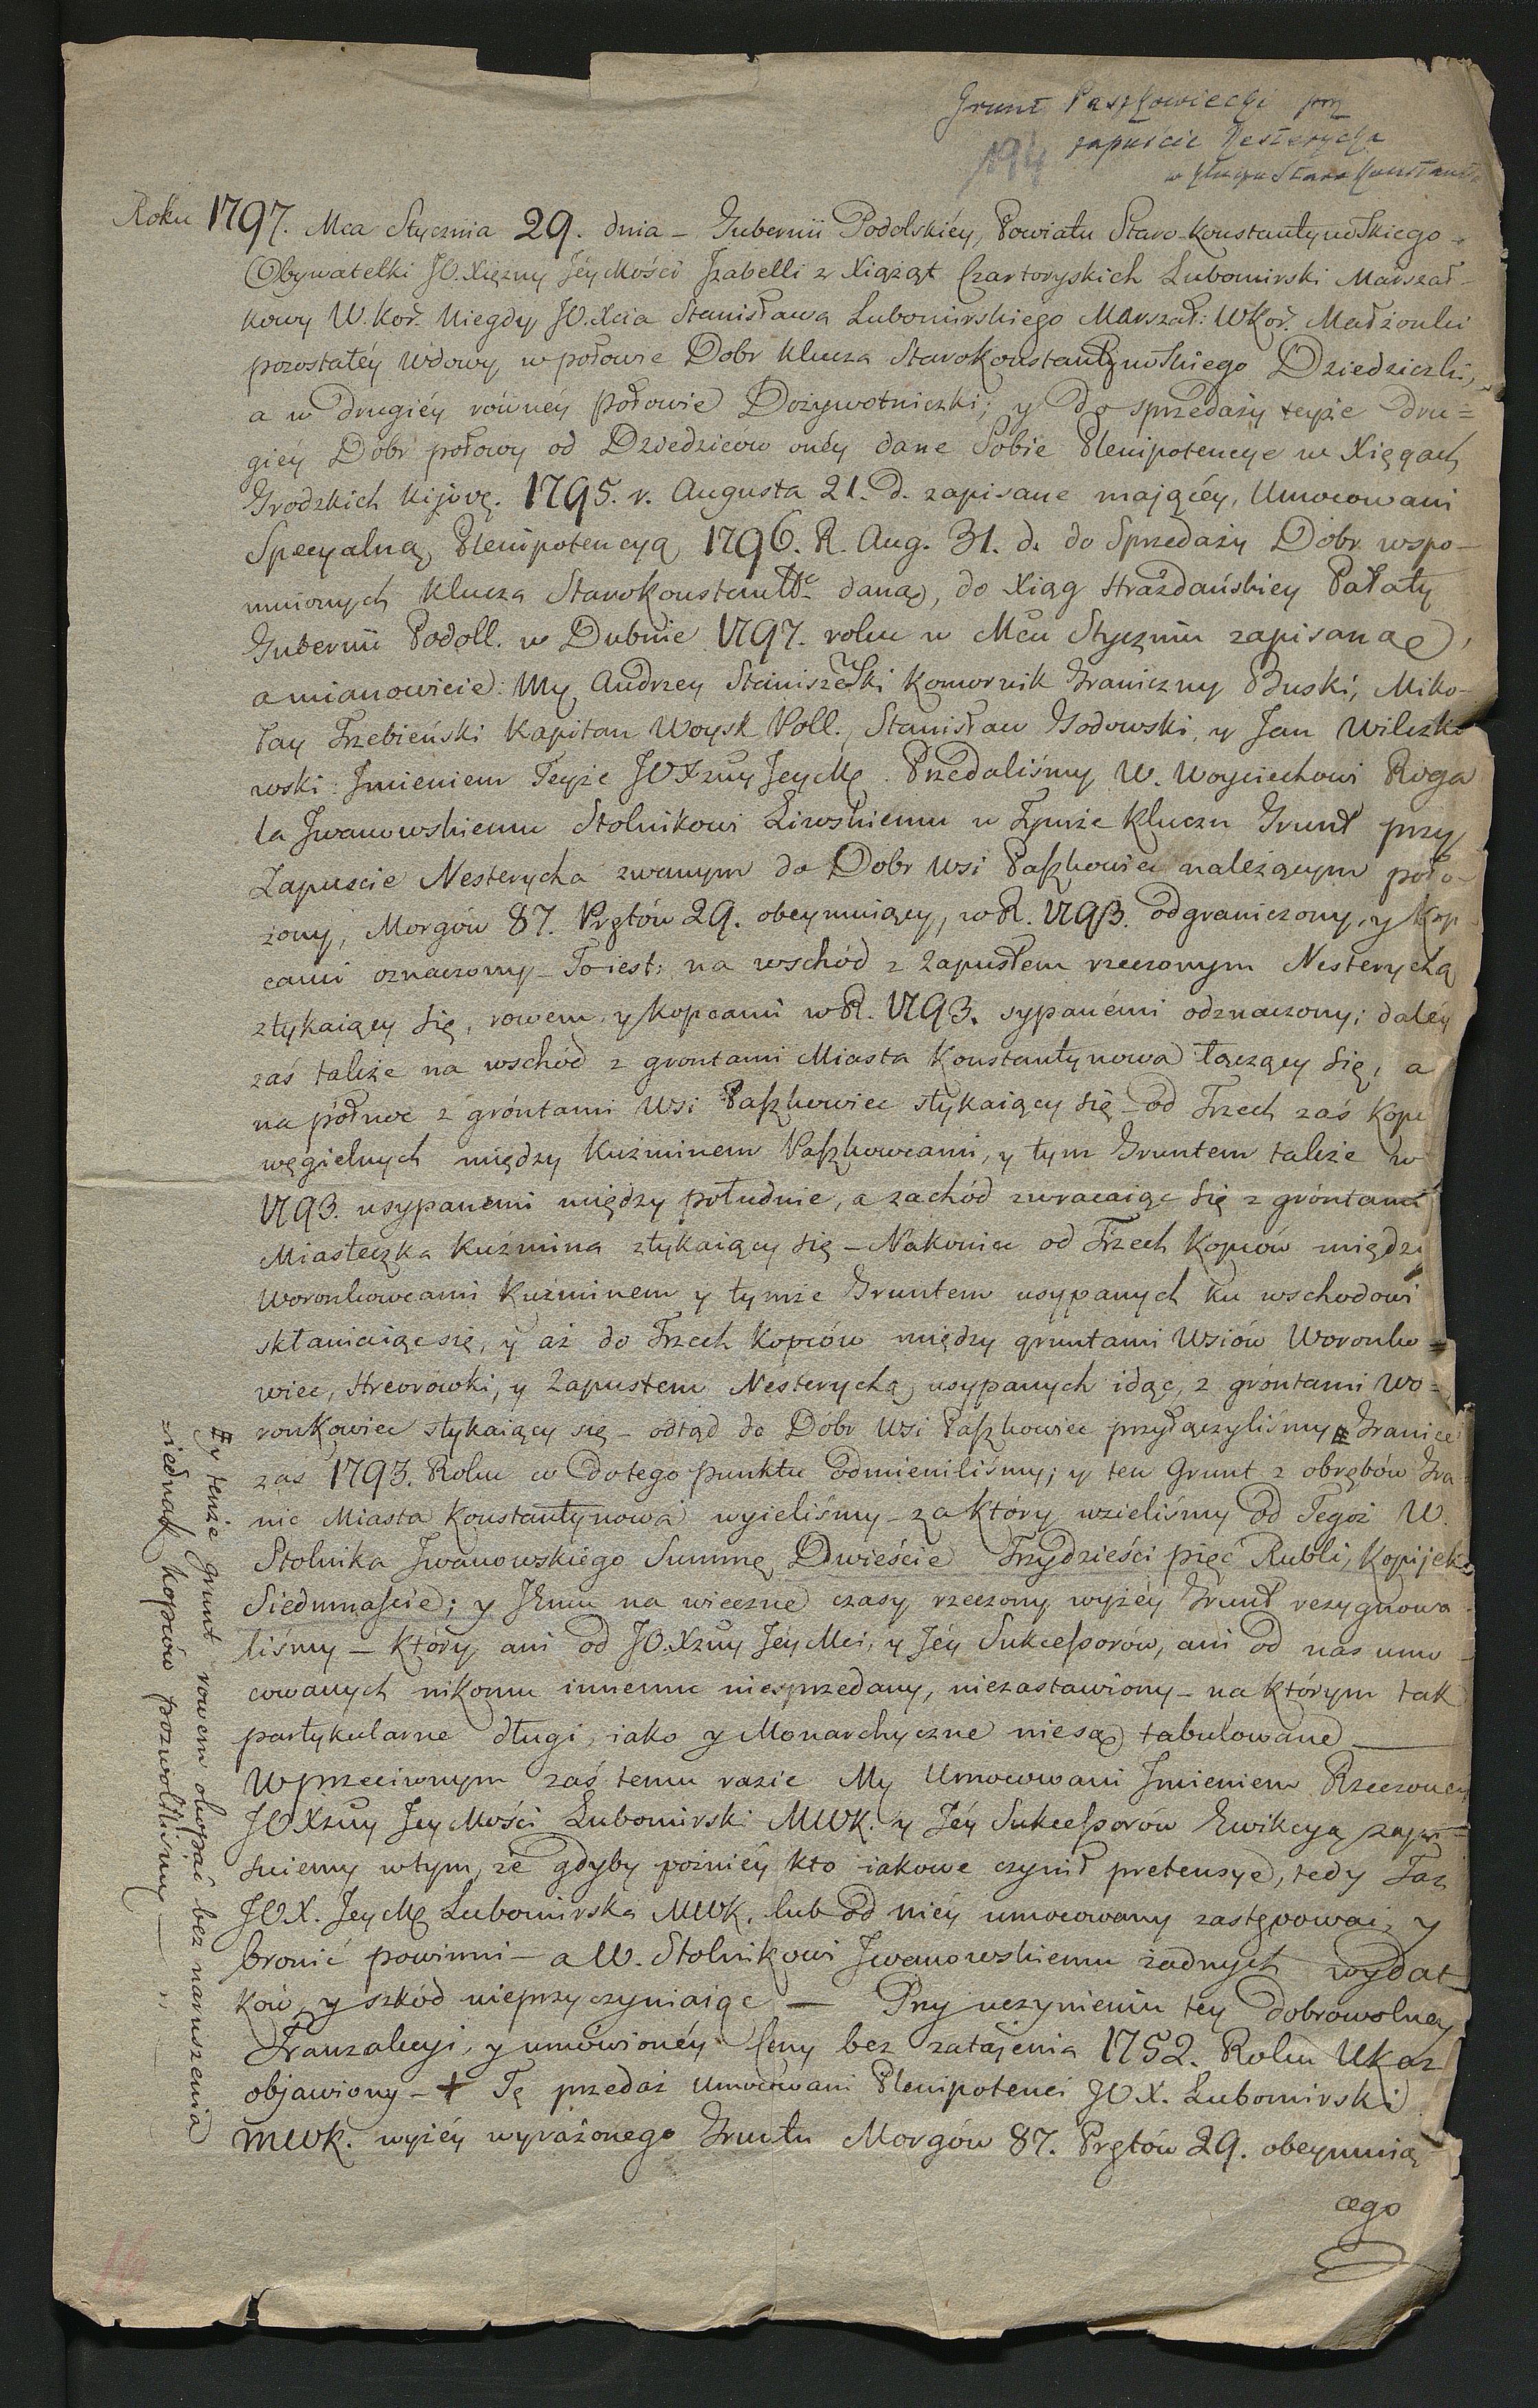 Grunt Paszkowiecki przy
zapuście Nesterycha
w kluczu Stara
194
Roku 1797. Mca Stycznia 29. dnia – Gubernii Podolskiéy, Powiatu Staro-Konstantynowskiego
Obywatelki JO. Xiężny Jéy Mości Izabelli z Xiążąt Czartoryskich Lubomirski Marszał-
kowy W. Kor. Niegdy JO. Xcia Stanisława Lubomirskiego Marszał: WKor. Małżonki
pozostałéy Wdowy, w połowie Dobr Klucza Starokonstantynowskiego Dziedziczki,
a w drugiéy równéy połowie Dożywotniczki; y do sprzedaży teyże dru=
giéy Dóbr połowy od Dziedziców onéy dane Sobie Plenipotencye w Xięgach
Grodzkich Kijow. 1795. r. Augusta 21. d. zapisane maiącéy, Umocowani
Specyalną Plenipotencyą 1796. R. Aug. 31. d. do Sprzedaży Dóbr wspo-
mnionych Klucza Starokonstantw daną, do Xiąg Hrażdańskiey Pałaty
Gubernii Podoll. w Dubnie 1797. roku w Mcu Styczniu zapisaną,
a mianowicie: My Andrzey Staniszewski Komornik Graniczny Buski, Miko-
łay Trzebieński Kapitan Woysk Poll., Stanisław Godowski, y Jan Wilczko
wski: Imieniem Teyże JOXzny JeyMci Przedaliśmy W. Woyciechowi Roga
la Iwanowskiemu Stolnikowi Liwskiemu w Tymże Kluczu Grunt przy
Zapuscie Nesterycha zwanym do Dobr Wsi Paszkowiec należącym poło-
żony, Morgów 87. Prętów 29. obeymuiący, w R. 1793. odgraniczony, y kop-
cami oznaczony – To iest: na wschód z Zapustem rzeczonym Nesterychą
ztykaiący się, rowem, y kopcami w R. 1793. sypanémi odznaczony; daléy
zaś także na wschód z grontami Miasta Konstantynowa łączący się, a
na północ z gróntami Wsi Paszkowiec stykaiący się – od Trzech zaś Kopc
węgielnych między Kuźminem Paszkowcami, y tym Gruntem także w
1793. usypanemi między południe, a zachód zwracaiąc się z gróntami
Miasteczka Kuźmina ztykaiący się – Nakoniec od Trzech Kopców między
Woronkowcami Kuźminem y tymże Gruntem usypanych ku wschodowi
skłaniaiąc się, y aż do Trzech Kopców między gruntami Wsiów Woronko=
wiec, Hreorówki, y Zapustem Nesterychą usypanych idąc, z gróntami Wo=
ronkowiec stykaiący się – odtąd do Dóbr Wsi Paszkowiec przyłączyliśmy # Granice
zaś 1793. Roku w do tego punktu odmieniliśmy; y ten Grunt z obrębów Gra
nic Miasta Konstantynowa wyieliśmy – za który wzieliśmy od Tegoż W.
Stolnika Iwanowskiego Summę Dwieście Trzydzieści pięć Rubli, Kopijek
Siedmnaście; y Jemu na wieczne czasy rzeczony wyżéy Grunt rezygnowa-
liśmy – który, ani od JO.Xzny JéyMci, y Jéy Sukcessorów, ani od nas umo-
cowanych nikomu innemu niesprzedany, niezastawiony – na którym tak
partykularne długi, iako y Monarchyczne niesą tabulowane
W przeciwnym zaś temu razie My Umocowani Imieniem Rzeczoney
JOXzny Jey Mości Lubomirski MWK. y Jéy Sukcessorów Ewikcyą zapi-
suiemy w tym, że gdyby poźniéy kto iakowe czynił pretensye, tedy Taż
JOX. JeyMć Lubomirska MWK. lub od niéy umocowany zastępować, y
bronić powinni – a W. Stolnikowi Iwanowskiemu żadnych wydat
ków, y szkód nieprzyczyniaiąc – Przy uczynieniu tey dobrowolney
Tranzakcyi, y umówionéy Ceny bez zatajenia 1752. Roku Ukaz
objawiony – + Tę przedaż Umocowani Plenipotenci JOX. Lubomirski
MWK. wyżéy wyrażonego Gruntu Morgów 87. Prętów 29. obeymuią
cego
# y tenże grunt rowem okopać bez naruszenia
iednak kopców pozwoliliśmy
16